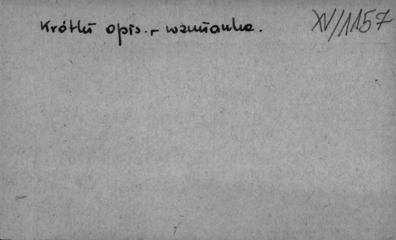 Krótki opis. - wzmianka.
XV/1157